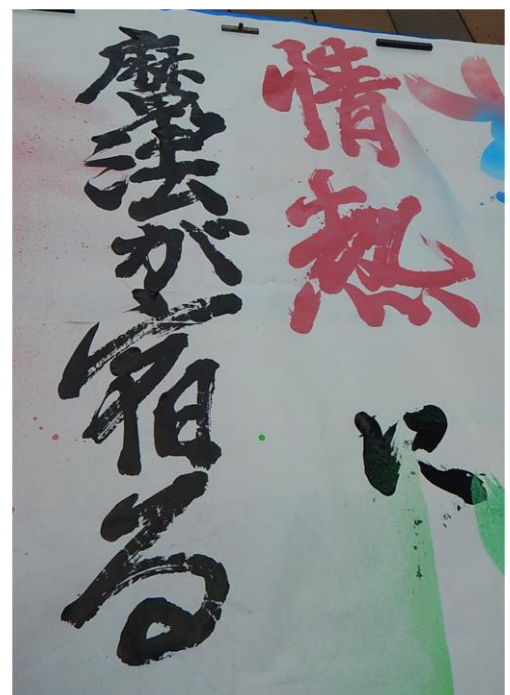 情熱
に
魔法が宿る